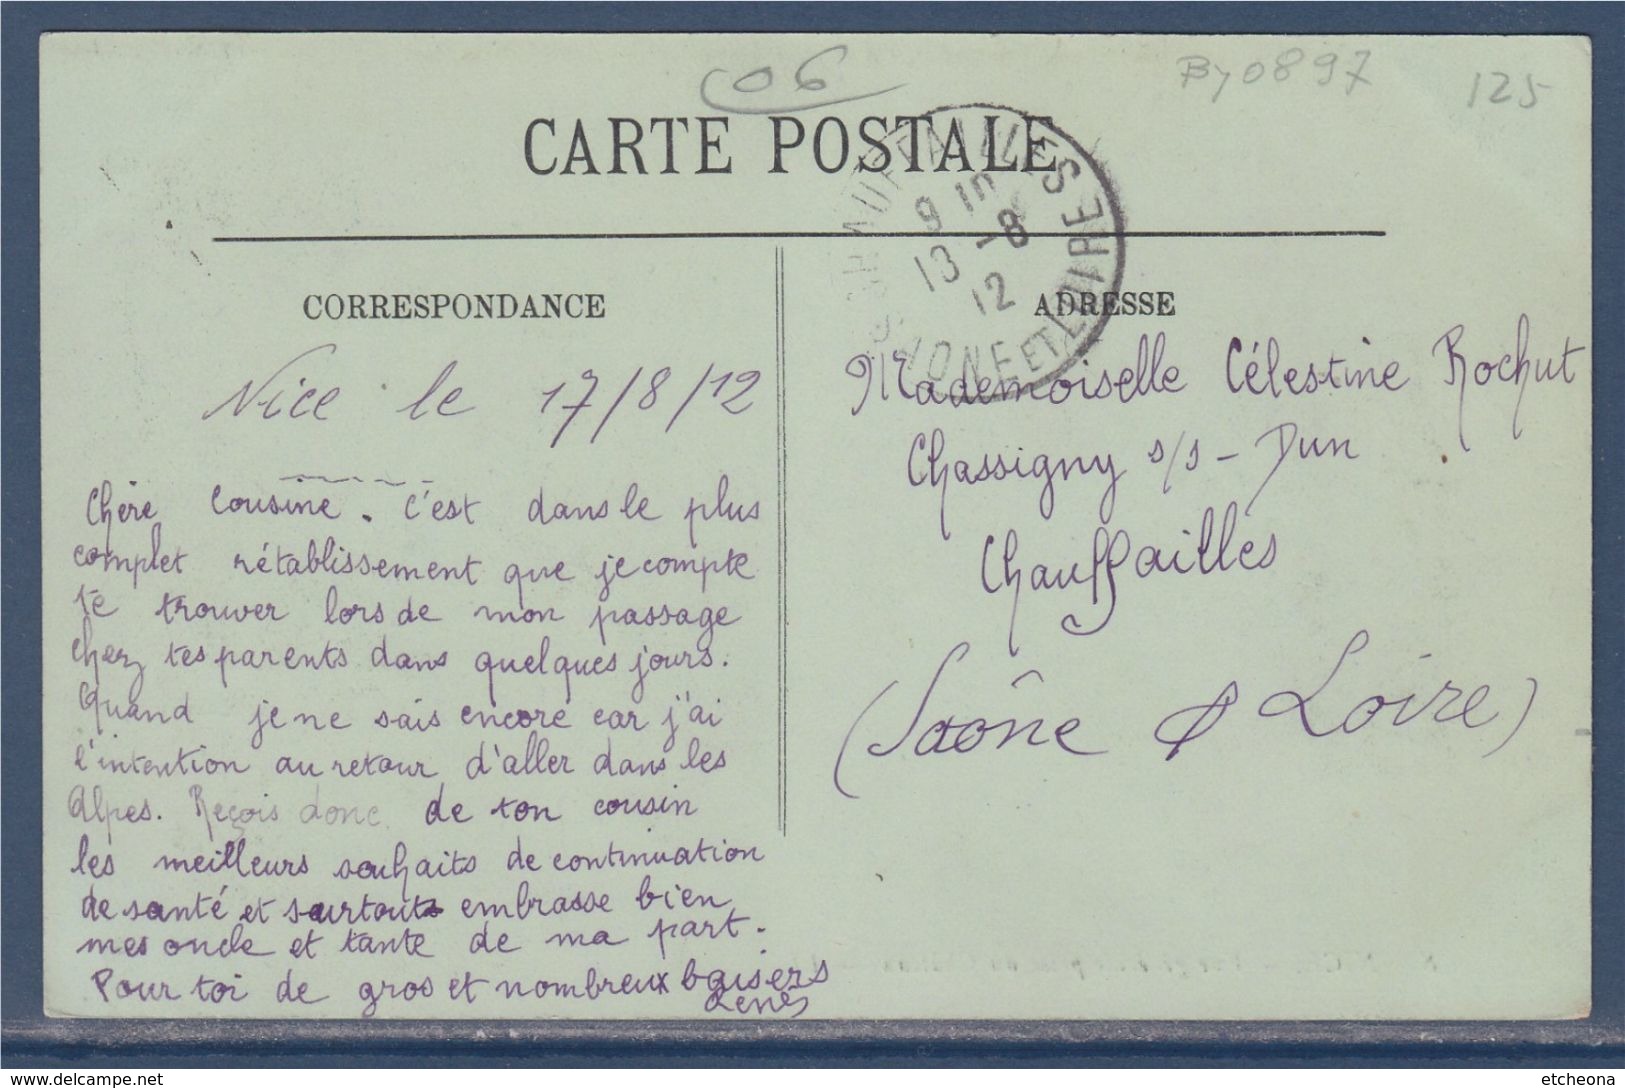 06
By0897
125
CARTE POSTALE
CHAUFFAILLES
9 10
13 -8
12
SAONE ET LOIRE
CORRESPONDANCE
ADRESSE
Nice le 17/8/12
Chère Cousine. C'est dans le plus
complet rétablissement que je compte
te trouver lors de mon passage
chez tes parents dans quelques jours.
Quand je ne sais encore car j'ai
l'intention au retour d'aller dans les
Alpes. Reçois donc de ton cousin
les meilleurs souhaits de continuation
de santé et surtout embrasse bien
mes oncle et tante de ma part.
Pour toi de gros et nombreux baisers
Mademoiselle Célestine Rochut
Chassigny s/s - Dun
Chauffailles
(Saône & Loire)
delcampe.net
etcheona